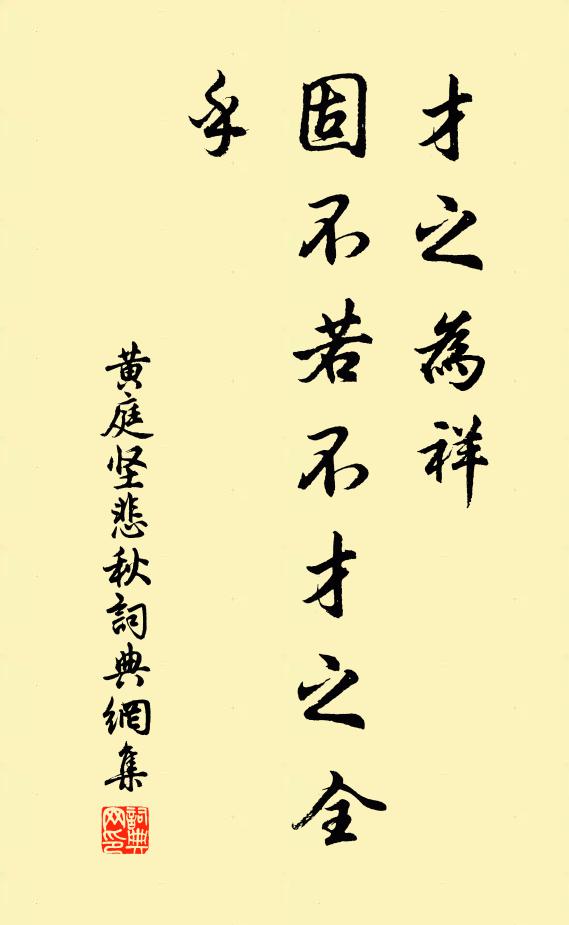 才之為祥
固不若不才之全
乎
黄庭坚悲秋詞典網集
詞典网印